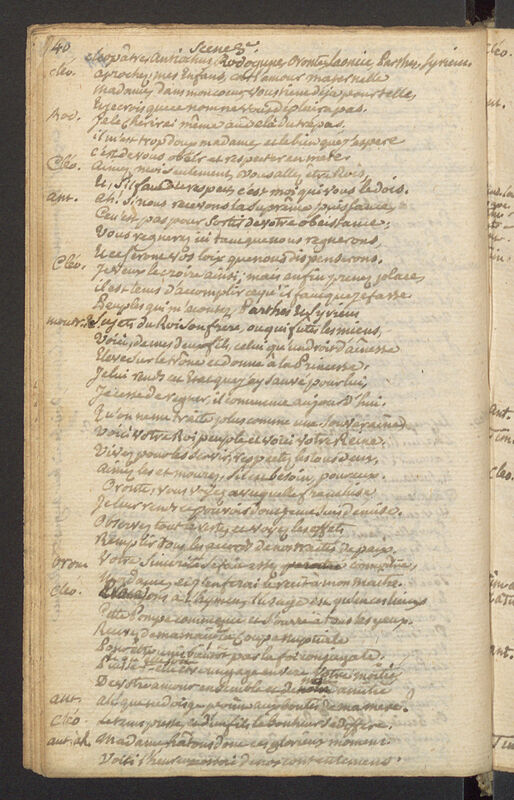 40
Scene 3e
cleopâtre, Antiochus, Rodogune, Oronte, Laonice, Parthes, Syriens
cléo. aprochez, mes Enfans, car l'amour maternelle
madame, dans mon coeur vous tient déja pour telle,
Et je crois que ce nom ne vous déplaira pas.
Rod. Je le chérirai même au delà du trépas.
il m'est trop doux madame, et le bien que j'espere
c'est de vous obéir et respecter en mere.
Cléo. aimez moi seulement, vous allez etre Rois,
Et, s'il faut du respect, c'est moi qui vous le dois.
ant. ah! Si nous recevons la suprême puissance,
Ce n'est pas pour Sortir de votre obeissance;
Vous regnerez ici tant que nous regnerons,
Et ce seront vos loix que nous dispenserons.
Cléo. J'ose le croire ainsi; mais enfin prenez place,
il est tems d'accomplir ce qu'il faut que je fasse
Peuples qui m'ecoutez, Parthes et Syriens
Sujets du Roi son frere, ou qui futes les miens,
Voici, de mes deux fils, celui qu'un droit d'ainesse
Eleve sur le trône et donne à la Princesse.
Je lui rends cet Etat que j'ay sauvé pour lui,
Je cesse de regner, il commence aujourd'hui.
Qu'on ne me traite plus comme une Souveraine
Voici votre Roi peuple, et voici votre Reine.
Vivez pour les servir, respectez les tous deux,
aimez les et mourez, s'il est besoin, pour eux.
Oronte, vous voyez avec quelle franchise
Je leur rends ce pouvoir dont je me suis demise.
Observez tout le reste, et voyez les effets
Remplir tous les de nos traités de paix.
Oron. Votre Sincerité s'y fait assez connoître,
Madame, et j'en ferai le recit à mon Maître.
Cléo.
Cette Pompe commence et s'ouvre à tous les yeux.
Recevez de ma main la Coupe nuptiale
Pour être unis par la foi conjugale.
Puisse être un gage envers votre moitié
De votre amour ensemble et de mon amitié
ant. ah! que ne dois-je point aux bontés de ma mere.
Cléo. Le tems presse, et d'un fils le bonheur se differe.
ant. à R. Madame, hâtons donc ces glorieux momens
Voici l'heureux essai de nos contentemens.